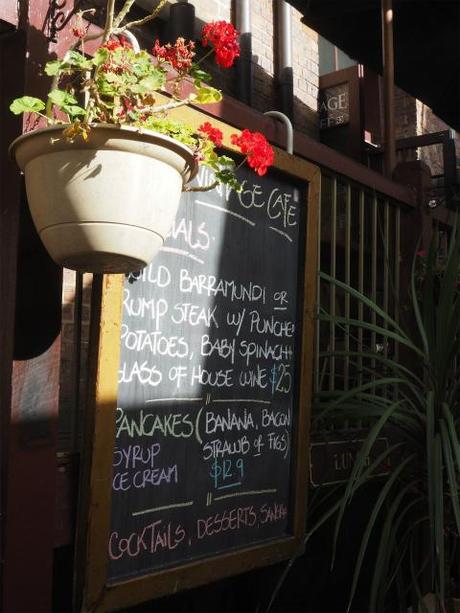 CAFE
WILD BARRAMUNDI OR
RUMP STEAK W/ PUNCHED
POTATOES, BABY SPINACH +
GLASS OF HOUSE WINE $25
PANCAKES (BANANA, BACON
STRAWB OF FIGS)
SYRUP
ICE CREAM
$12.9
COCKTAILS, DESSERTS,